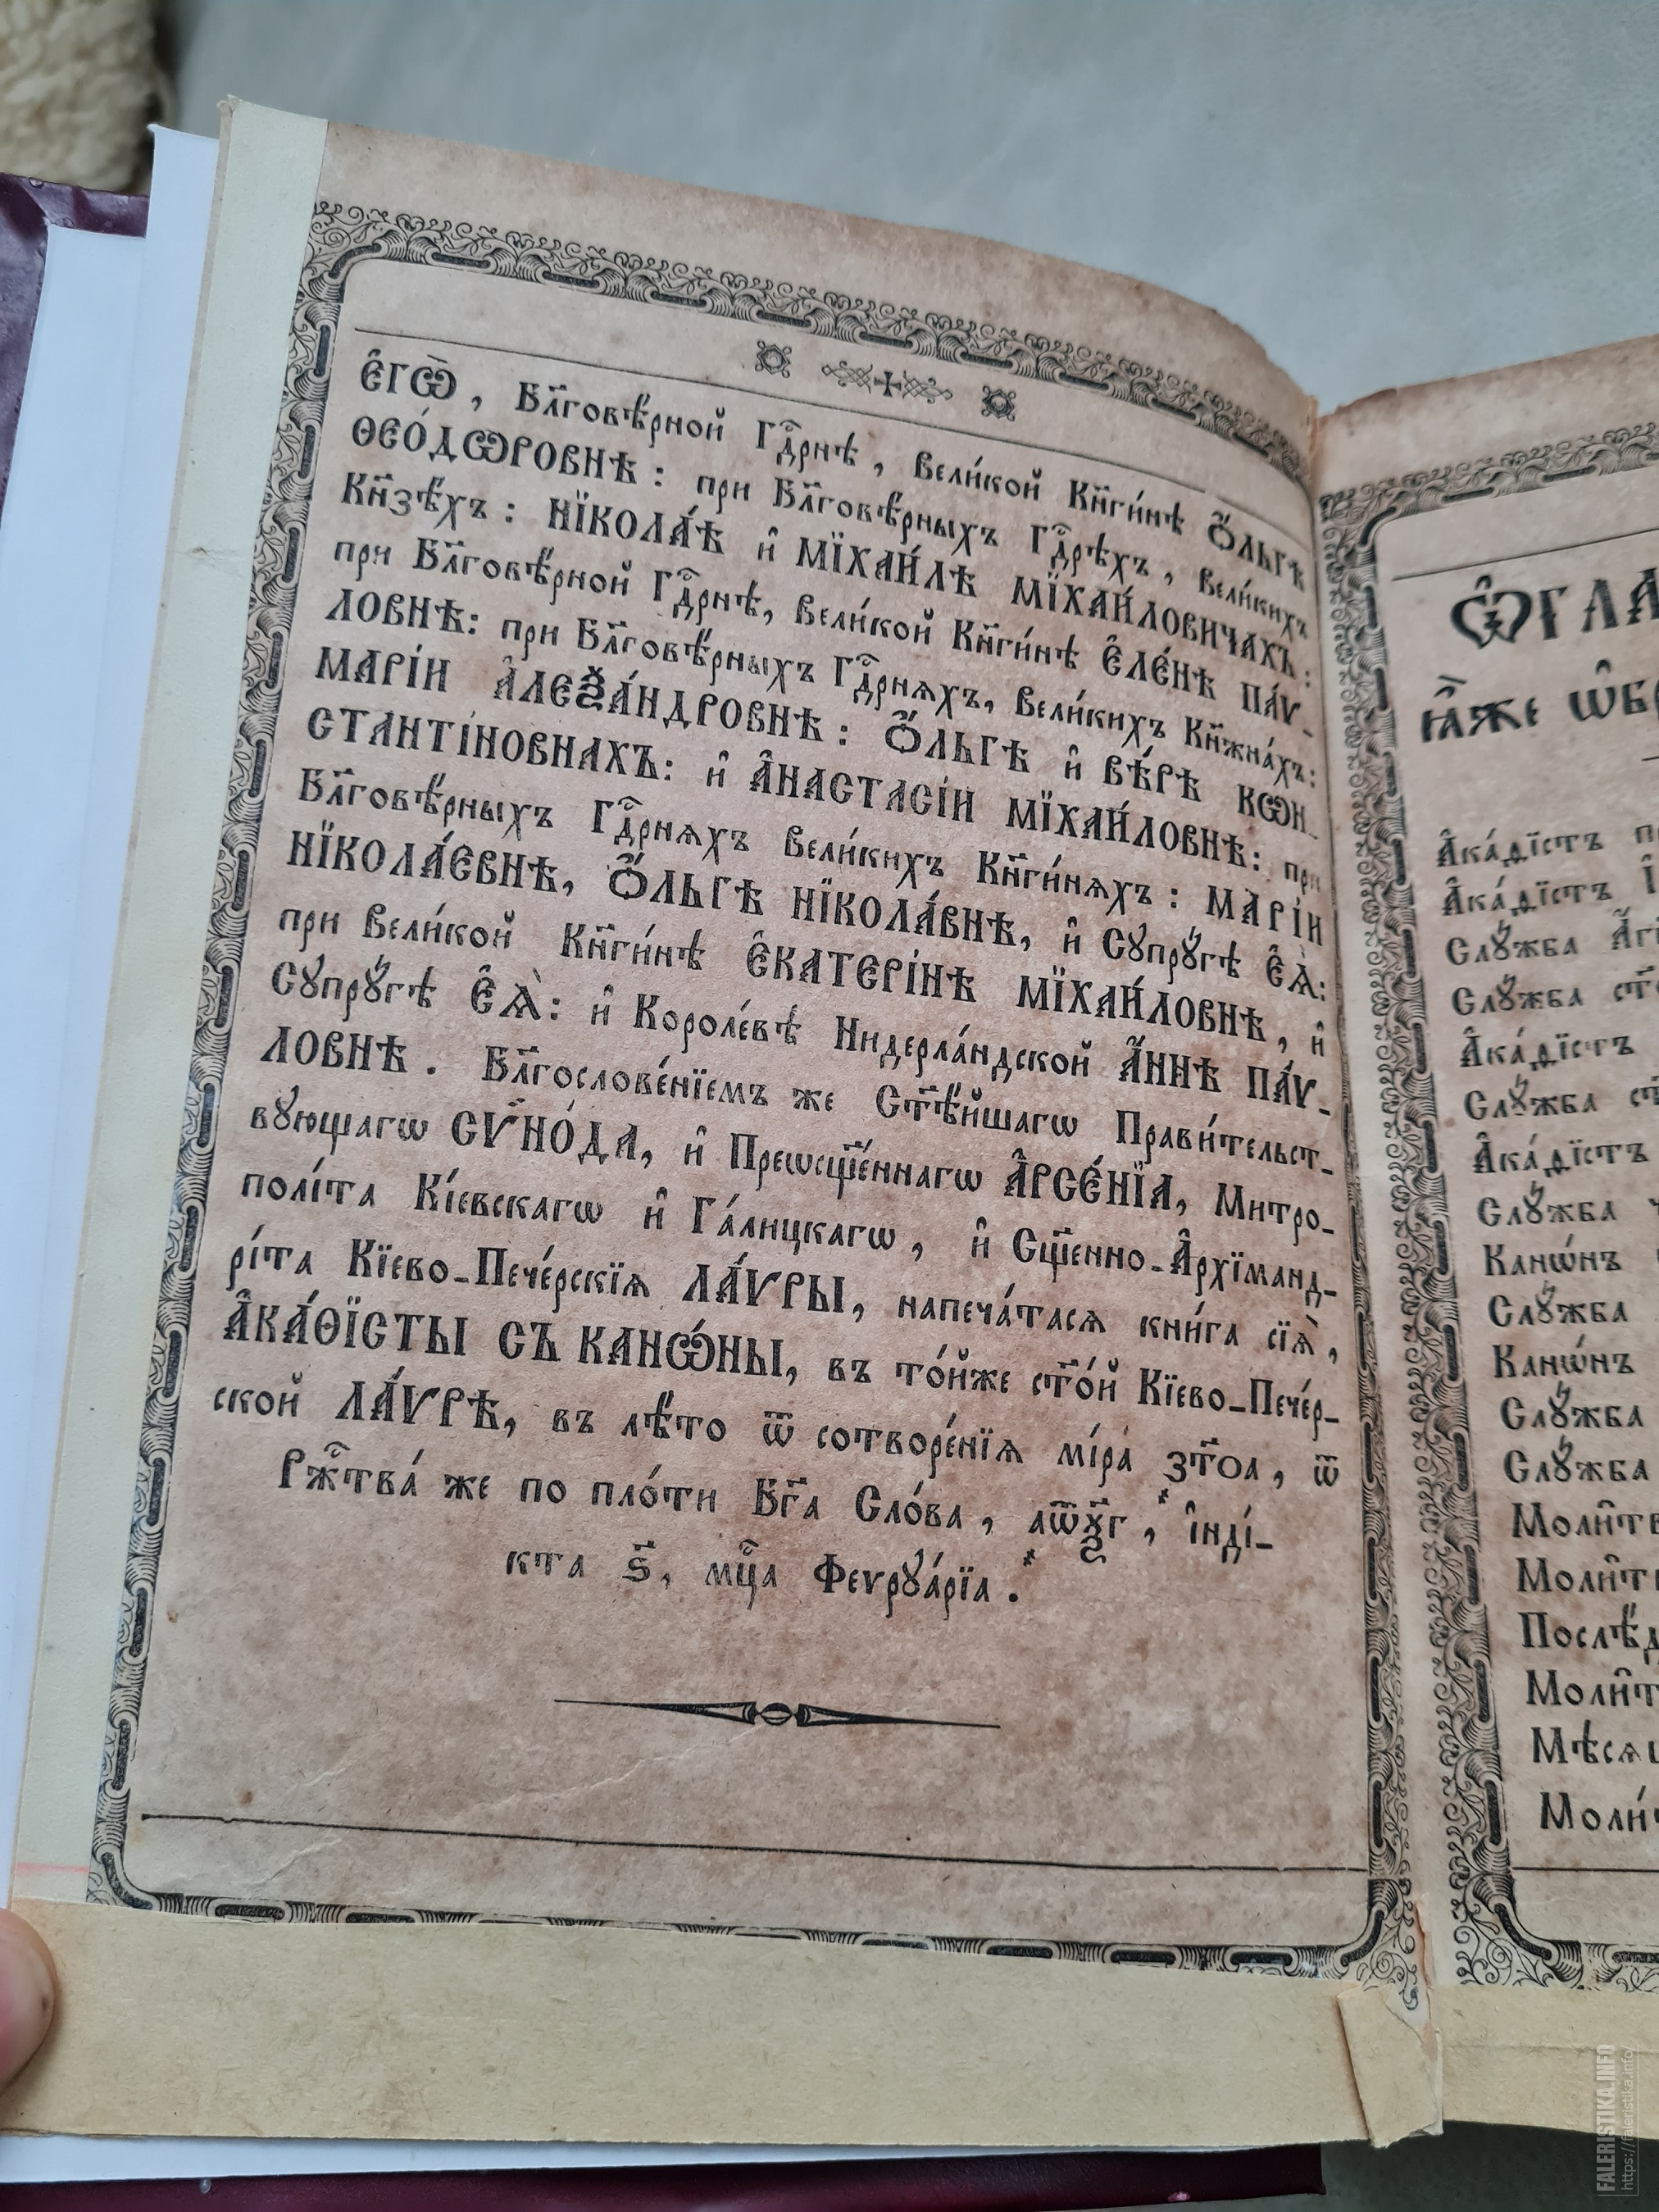 Є҆гѡ̀, Бл҃говѣ́рной Гдⷭ҇рнѣ, Вели́кой Кн҃ги́нѣ Ѻ҆́льгѣ
ѲЕО́ДѠРОВНѢ: при Бл҃говѣ́рныхъ Гдⷭ҇рѣхъ, Вели́кихъ
Кн҃зѣ́хъ: НЇКОЛА́Ѣ и҆ МЇХАИ́ЛѢ МЇХАИ́ЛОВИЧАХЪ:
при Бл҃говѣ́рной Гдⷭ҇рнѣ, Вели́кой Кн҃ги́нѣ Є҆ЛЕ́НѢ ПА́Ѵ-
ЛОВНѢ: при Бл҃говѣ́рныхъ Гдⷭ҇рняхъ, Вели́кихъ Кн҃жна́хъ:
МАРІ́И А҆ЛЕѮА́НДРОВНѢ: Ѻ҆́ЛЬГѢ и҆ ВѢ́РѢ КѠН-
СТАНТІ́НОВНАХЪ: и҆ А҆НАСТАСІ́И МЇХАИ́ЛОВНѢ: при
Бл҃говѣ́рныхъ Гдⷭ҇рняхъ Вели́кихъ Кн҃ги́няхъ: МАРІ́И
НЇКОЛА́ЕВНѢ, Ѻ҆́ЛЬГѢ НЇКОЛА́ВНѢ, и҆ Сꙋпрꙋ́гѣ Є҆Ѧ̀:
при Вели́кой Кн҃ги́нѣ Є҆КАТЕРІ́НѢ МЇХАИ́ЛОВНѢ, и҆
Сꙋпрꙋ́гѣ Є҆Ѧ̀: и҆ Короле́вѣ Нидерла́ндской А҆́ННѢ ПА́Ѵ-
ЛОВНѢ. Бл҃гослове́нїемъ же Ст҃ѣ́йшагѡ Прави́тельст-
вꙋющагѡ СѴНО́ДА, и҆ Преѡсщ҃е́ннагѡ А҆РСЕ́НЇА, Митро-
полі́та Кі́евскагѡ и҆ Га́лицкагѡ, и҆ Сщ҃енно-А҆рхїманд-
рі́та Кїево-Пече́рскїѧ ЛА́ѴРЫ, напеча́тасѧ кни́га сїѧ̀,
А҆КА́ѲЇСТЫ СЪ КАНѠ́НЫ, въ то́йже ст҃о́й Кїево-Пече́р-
ской ЛА́ѴРѢ, въ лѣ́то ѿ сотворе́нїѧ мі́ра ҂зт҃оа, ѿ
Ржⷭ҇тва́ же по пло́ти Бг҃а Сло́ва, ҂аѿѯ҃г, і҆нді́-
кта ѕ҃, мцⷭ҇а Феѵрꙋа́рїа.
Ѡ҆ГЛА
Ꙗ҆̀же ѡ҆бр
А҆ка́ѳїстъ
А҆ка́ѳїстъ
Слꙋ́жба
Слꙋ́жба
А҆ка́ѳїстъ
Слꙋ́жба
А҆ка́ѳїстъ
Слꙋ́жба
Канѡ́нъ
Слꙋ́жба
Канѡ́нъ
Слꙋ́жба
Слꙋ́жба
Моли҆тв
Моли҆т
Послѣ́д
Моли҆т
Мѣсѧц
Моли́т
FALERISTIKA.INFO
https://faleristika.info